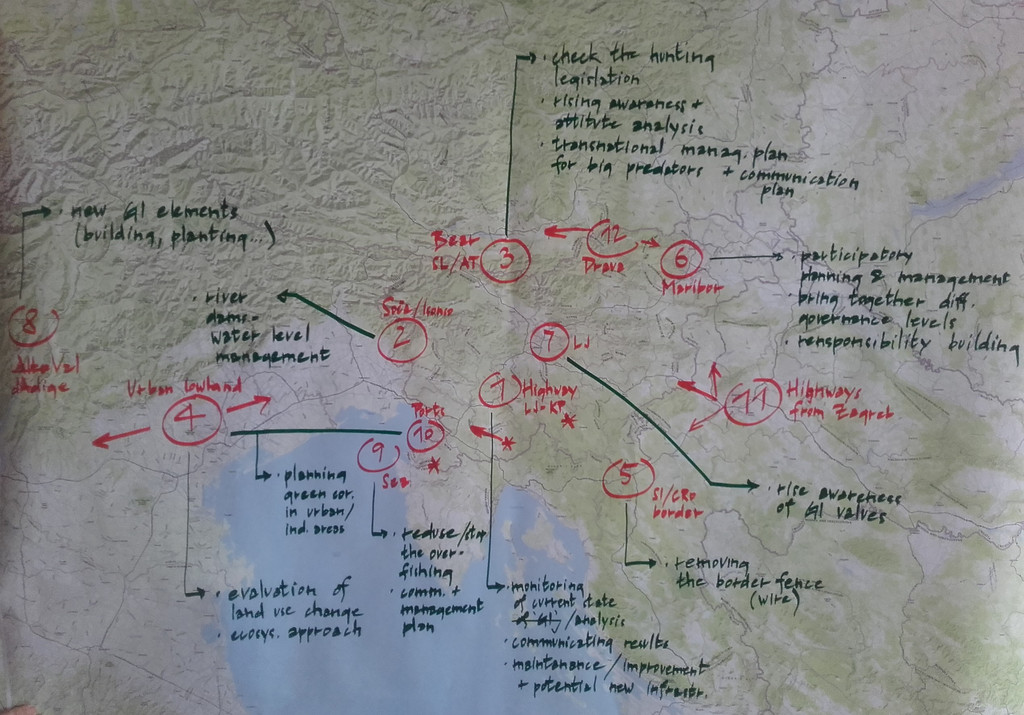 check the hunting
legislation
· rising awareness +
attitute analysis
· transnational manag. plan
for big predators + communication
plan
· new GI elements
(building, planting...)
Bear
SL/AT
3
12
Drava
6
Maribor
· participatory
planning & management
· bring together diff.
governance levels
· rensponsibility building
· river
dams -
water level
management
Soča/Isonzo
2
8
Adige
7
LJ
Urban lowland
4
1
Highway
LJ-KP
*
11
Highways
from Zagreb
Ports
10
*
*
9
Sea
5
SI/CRO
border
· planning
green cor.
in urban/
ind. areas
· rise awareness
of GI values
· reduse/stop
the over-
fishing
· comm. +
management
plan
· removing
the border fence
(wire)
· evaluation of
land use change
· ecosys. approach
· monitoring
of current state
of GI/analysis
· communicating results
· maintanance/improvement
+ potential new infrastr.